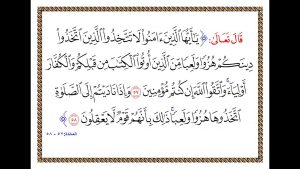 قَالَ تَعَالَى: ﴿ يَٰٓأَيُّهَا ٱلَّذِينَ ءَامَنُوا۟ لَا تَتَّخِذُوا۟ ٱلَّذِينَ ٱتَّخَذُوا۟
دِينَكُمْ هُزُوًا وَلَعِبًا مِّنَ ٱلَّذِينَ أُوتُوا۟ ٱلْكِتَٰبَ مِن قَبْلِكُمْ وَٱلْكُفَّارَ
أَوْلِيَآءَ ۚ وَٱتَّقُوا۟ ٱللَّهَ إِن كُنتُم مُّؤْمِنِينَ ٥٧ وَإِذَا نَادَيْتُمْ إِلَى ٱلصَّلَوٰةِ
ٱتَّخَذُوهَا هُزُوًا وَلَعِبًا ۚ ذَٰلِكَ بِأَنَّهُمْ قَوْمٌ لَّا يَعْقِلُونَ ٥٨ ﴾
المائدة: ٥٧ - ٥٨